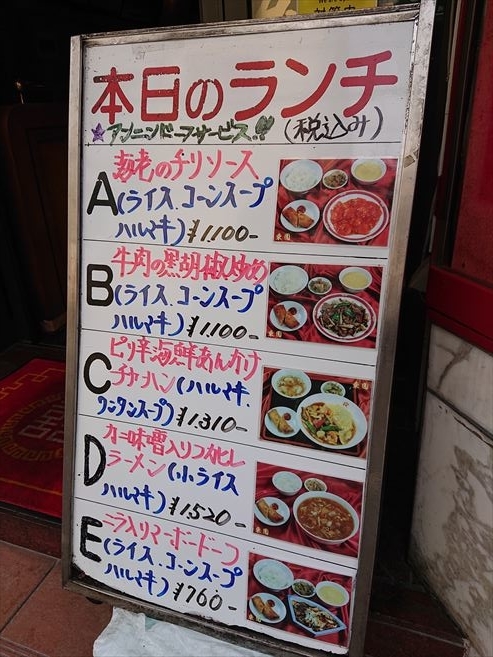 本日のランチ
★アンニンドーフサービス!! (税込み)
海老のチリソース
A (ライス、コーンスープ
ハルマキ) ¥1,100-
牛肉の黒胡椒炒め
B (ライス、コーンスープ
ハルマキ) ¥1,100-
ピリ辛海鮮あんかけ
C チャーハン (ハルマキ、
ワンタンスープ) ¥1,310-
カニ味噌入りフカヒレ
D ラーメン (小ライス
ハルマキ) ¥1,520-
ニラ入りマーボードーフ
E (ライス、コーンスープ
ハルマキ) ¥760-